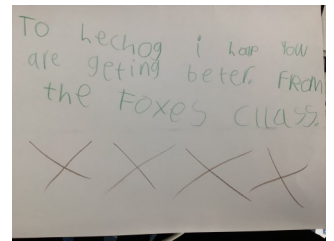 To hechog i hop you
are geting beter. From
the Foxes Cllass.
X X X X